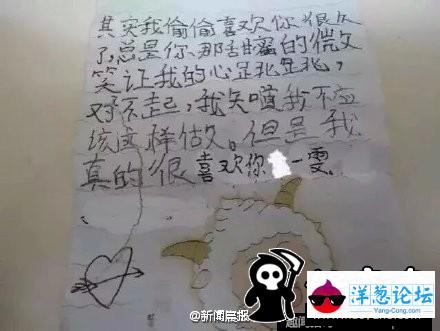 其实我偷偷喜欢你很久
了,总是你那甜蜜的微
笑让我的心
对不起,我知道我不应
该这样做。但是我
真的很喜欢你 一雯
@新闻晨报
洋葱论坛
Yang-Cong.com